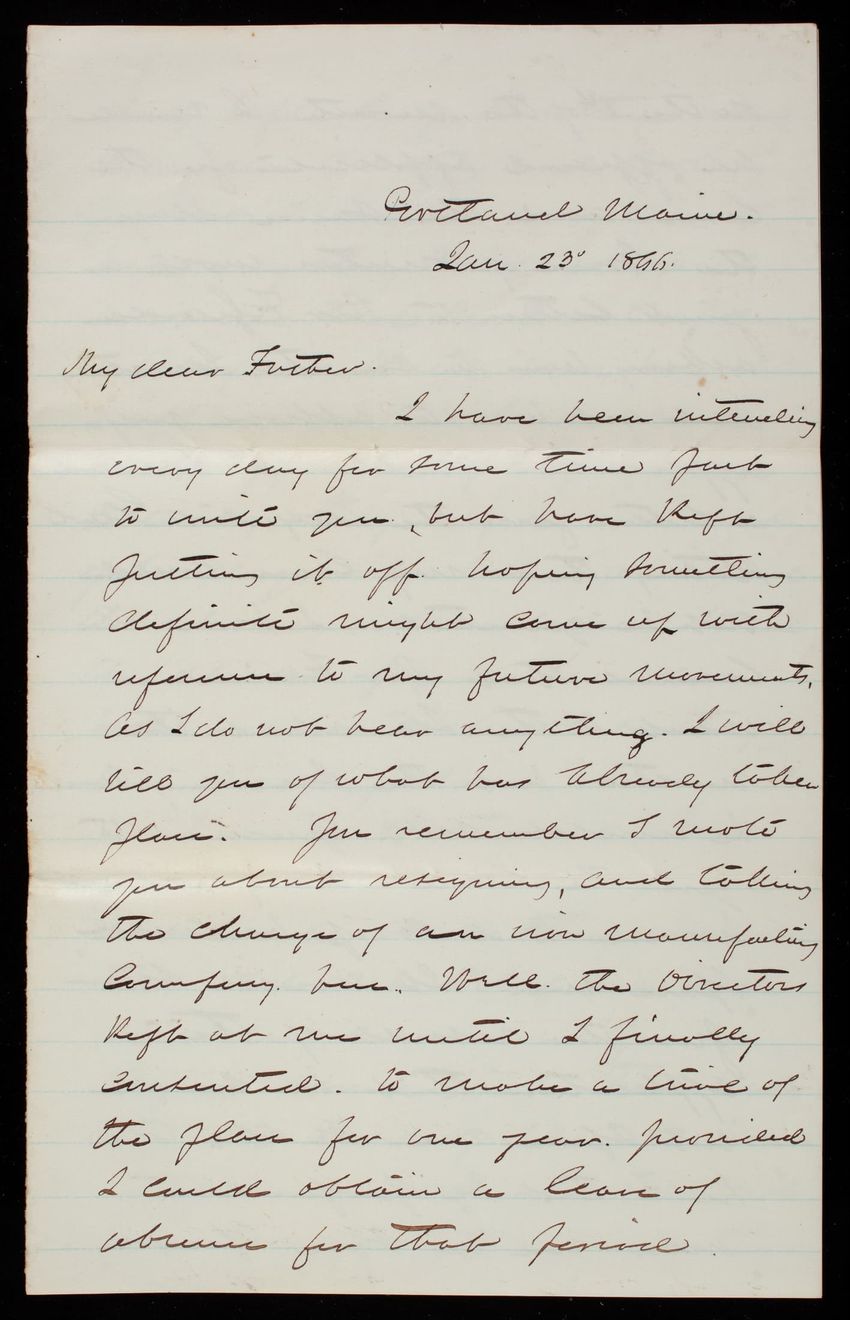 Portland Maine.
Jan. 23d 1866.
My dear Father.
I have been intending
every day for some time past
to write you, but have kept
putting it off hoping something
definite might come up with
reference to my future movements.
As I do not hear anything. I will
tell you of what has already taken
place. You remember I wrote
you about resigning, and taking
the charge of an iron manufacting
Company here. Well. the Directors
kept at me until I finally
consented. to make a trial of
the place for one year. provided
I could obtain a leave of
absence for that period.